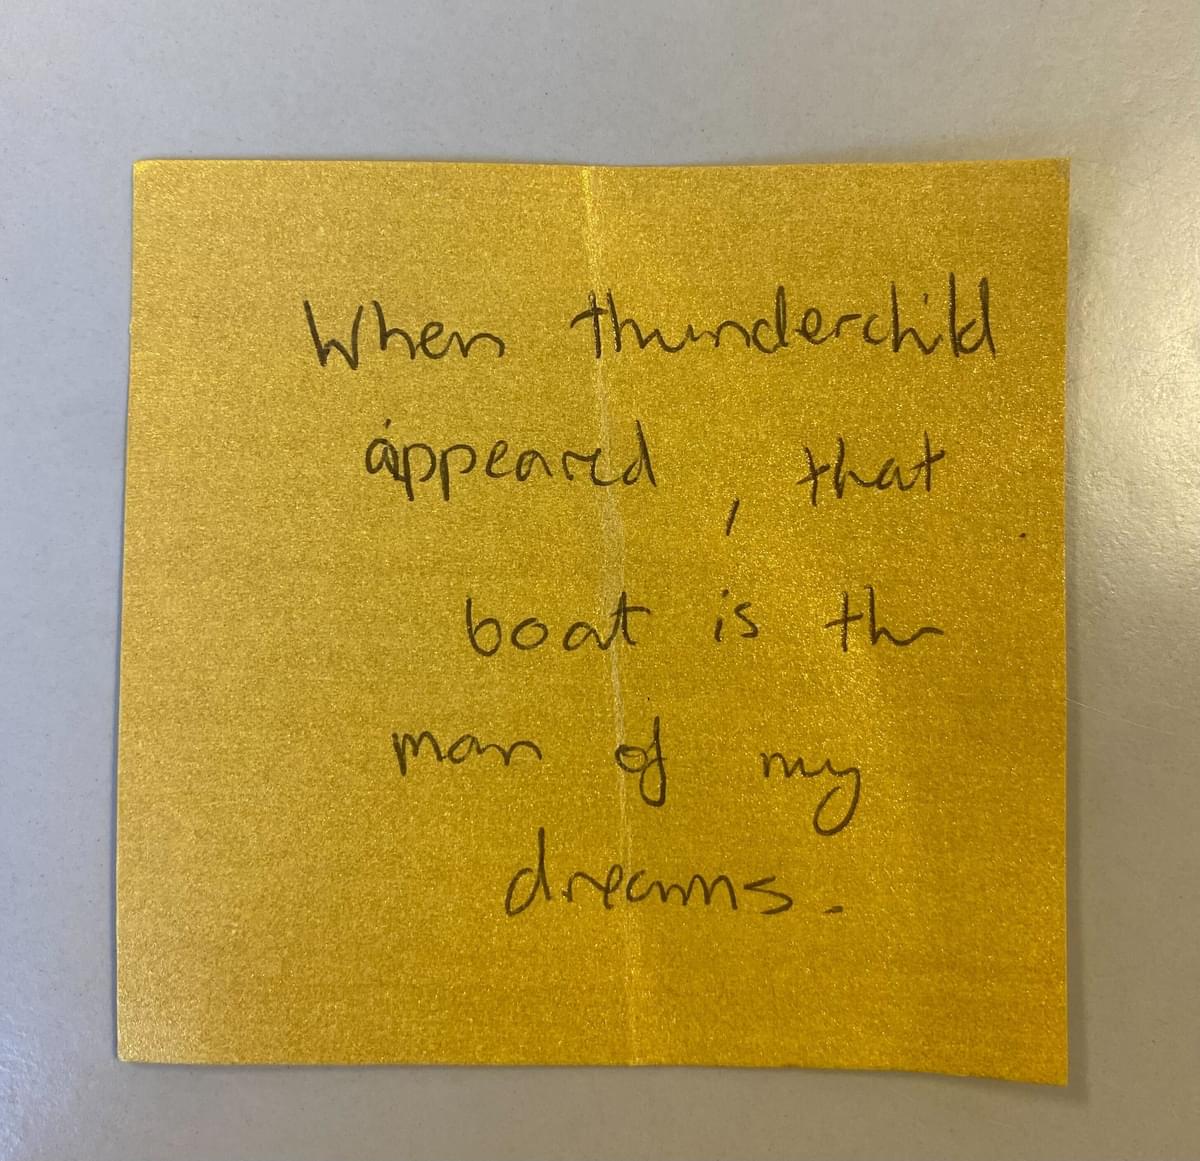 When thunderchild
appeared, that
boat is the
man of my
dreams.